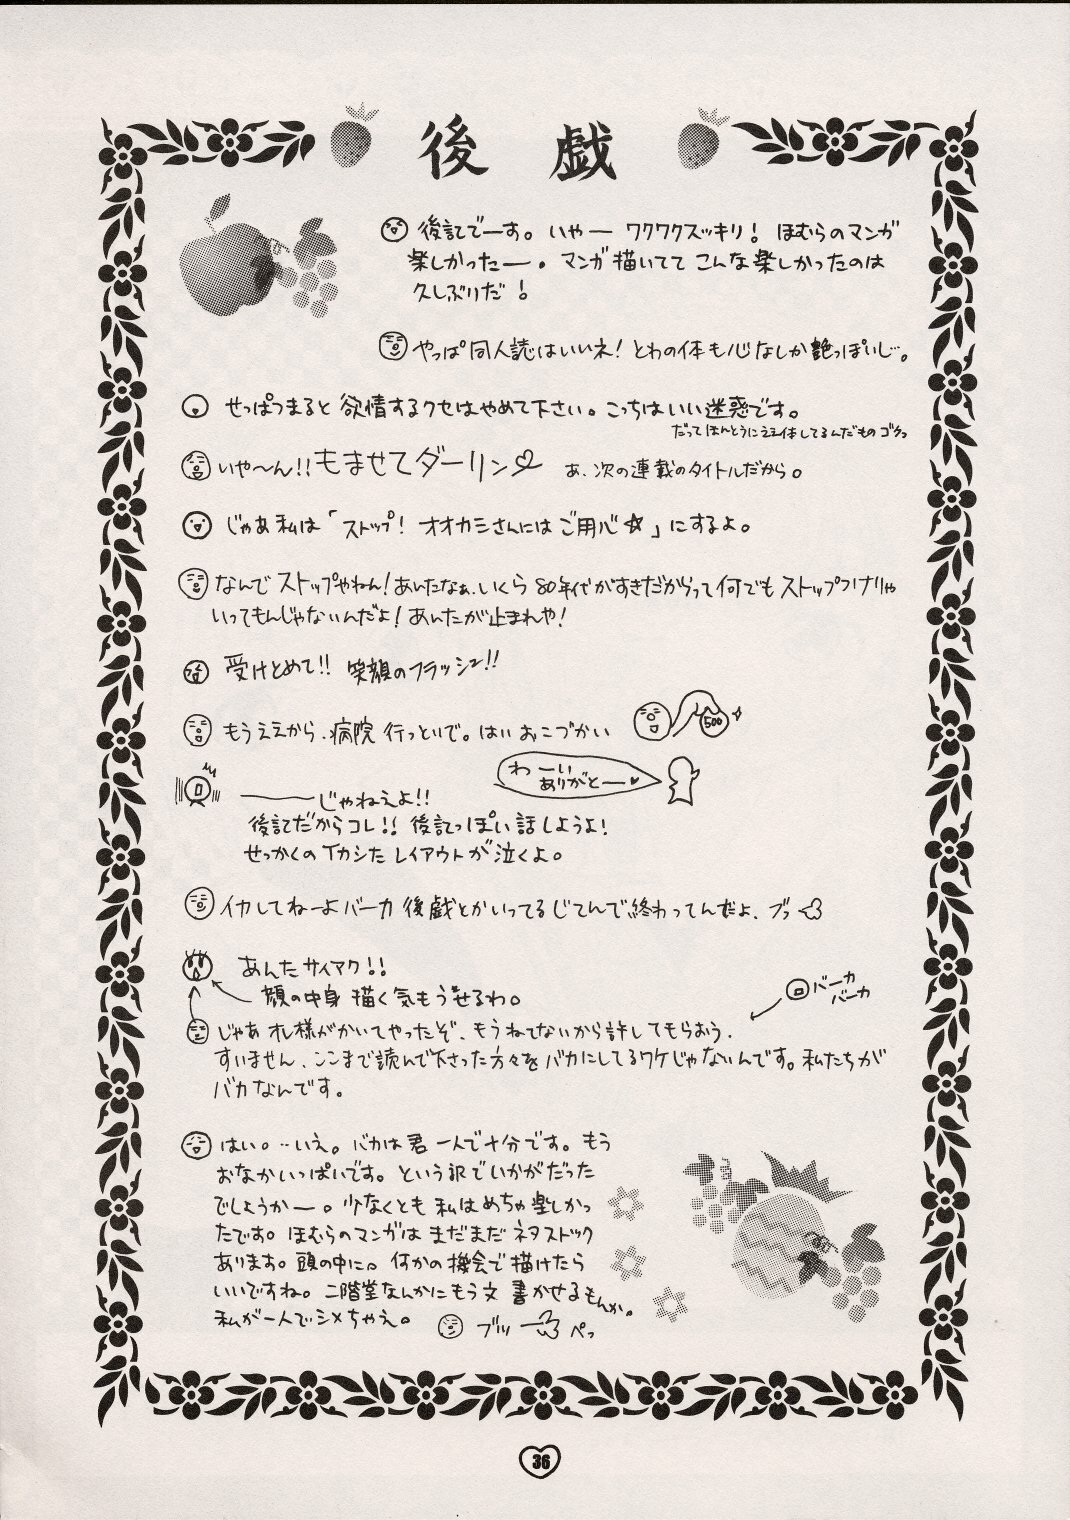 後戯
後記でーす。いやー ワクワクスッキリ! ほむらのマンガ
楽しかったー。マンガ描いてて こんな楽しかったのは
久しぶりだ!
やっぱ同人誌はいいネ! とわの体も心なしか艶っぽいし。
せっぱつまると欲情するクセはやめて下さい。こっちはいい迷惑です。
だってほんとうにええ体してるんだもの ゴクッ
いや~ん!!もませてダーリン♡ あ、次の連載のタイトルだから。
じゃあ私は「ストップ! オオカミさんにはご用心☆」にするよ。
なんでストップやねん!あんたなぁ、いくら80年代がすきだからって何でもストップつけりゃ
いってもんじゃないんだよ!あんたが止まれや!
受けとめて!! 笑顔のフラッシュ!!
もうええから、病院行っといで。はい おこづかい
500
わーい
ありがとー♥
――じゃねえよ!!
後記だからコレ!! 後記っぽい話しようよ!
せっかくのイカシたレイアウトが泣くよ。
イカしてねーよバーカ 後戯とかいってるじてんで終わってんだよ、ブッ
あんたサイアク!!
顔の中身 描く気もうせるわ。
バーカ
バーカ
じゃあオレ様がかいてやったぞ、もうねてないから許してもらおう、
すいません、ここまで読んで下さった方々をバカにしてるワケじゃないんです。私たちが
バカなんです。
はい。‥いえ。バカは君一人で十分です。もう
おなかいっぱいです。という訳でいかがだった
でしょうかー。少なくとも私はめちゃ楽しかっ
たです。ほむらのマンガはまだまだネタストック
あります。頭の中に。何かの機会で描けたら
いいですね。二階堂なんかにもう文書かせるもんか。
私が一人でシメちゃえ。 ブツ ペっ
36